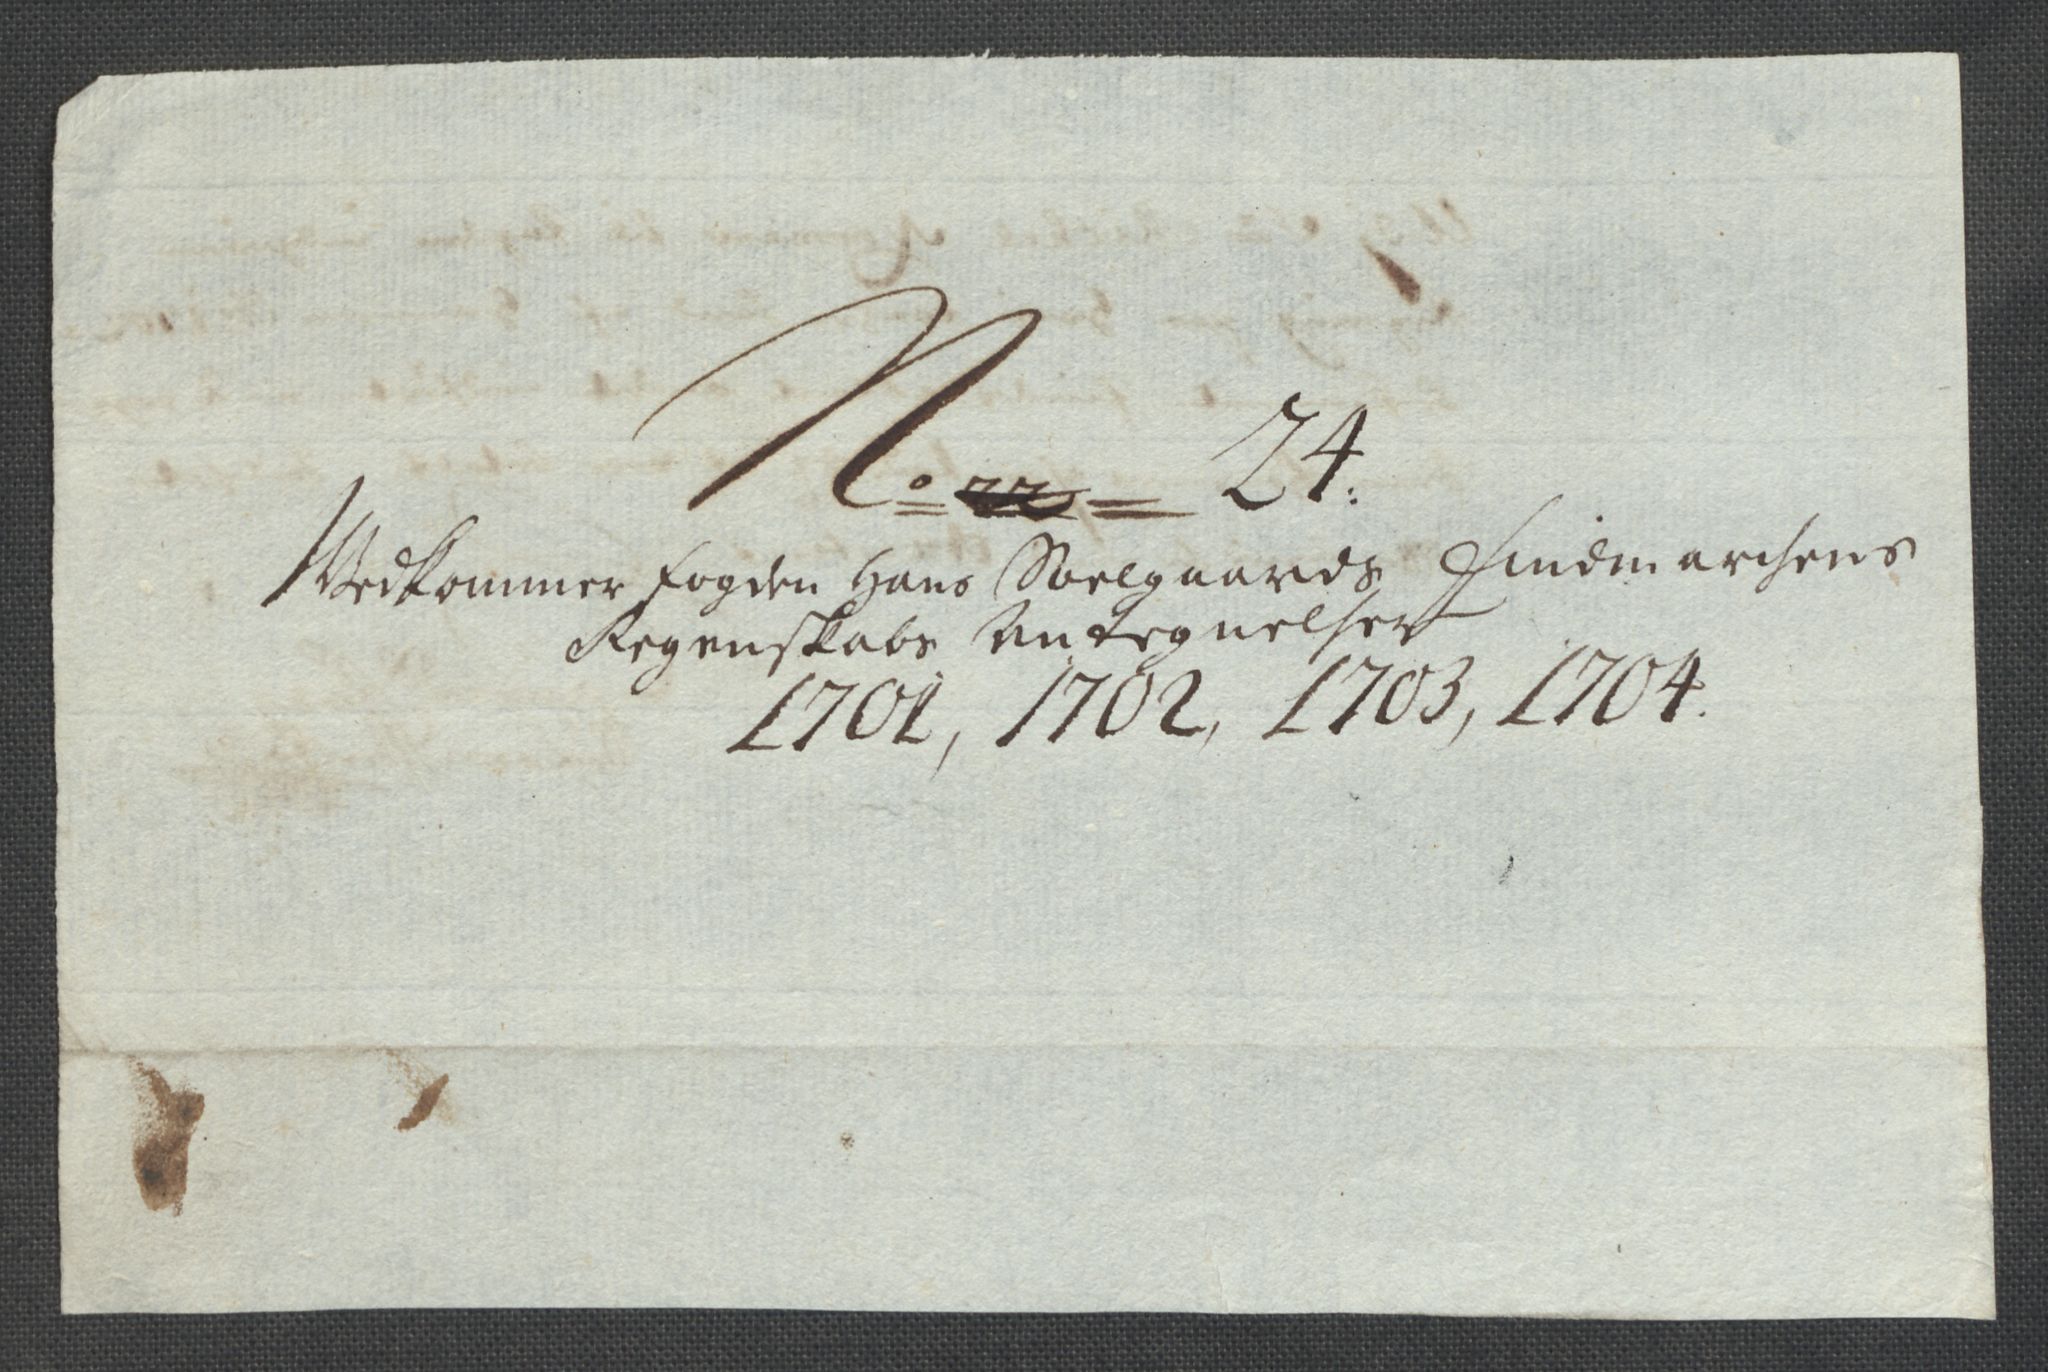 No 22 24.
Vedkommer fogden Hans Soelgaards Findmarchens
Regenskabs Antegnelser
1701, 1702, 1703, 1704.